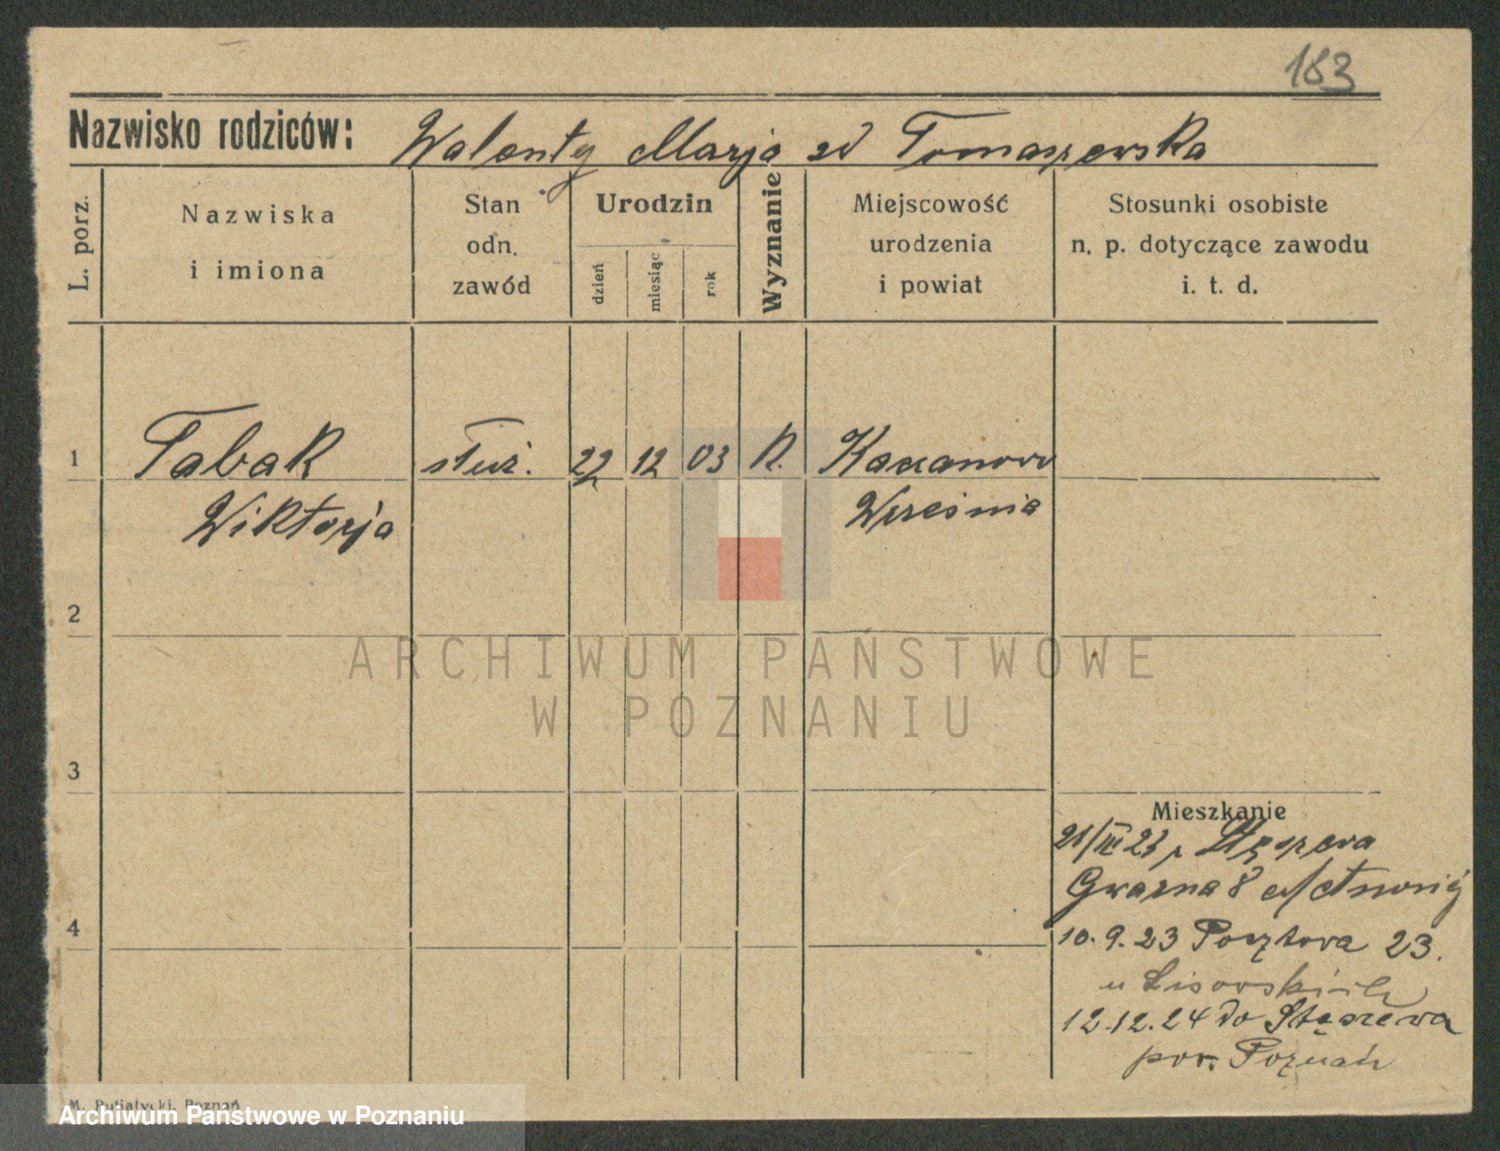 183
Nazwisko rodziców: Walenty Marja zd Tomaszewska
L. porz.
Nazwiska
i imiona
Stan
odn.
zawód
Urodzin
dzień
miesiąc
rok
Wyznanie
Miejscowość
urodzenia
i powiat
Stosunki osobiste
n. p. dotyczące zawodu
i. t. d.
1 Tabak służ. 22 12 03 R. Kaczanowo
Wiktorja Września
2
3
4
Mieszkanie
21/III 23 z Stęszewa
Gwarna 8
10. 9. 23 Pocztowa 23.
u Lisowskich
12.12.24 do Stęszewa
pow. Poznań
ARCHIWUM PAŃSTWOWE
W POZNANIU
M. Putiatycki, Poznań
Archiwum Państwowe w Poznaniu